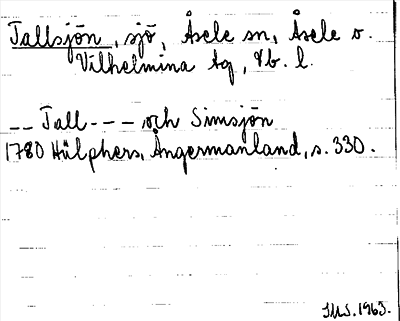 Tallsjön, sjö, Åsele sn, Åsele o.
Vilhelmina tg, Vb. l.
-- Tall --- och Simsjön
1780 Hülphers, Ångermanland, s. 330.
1963.